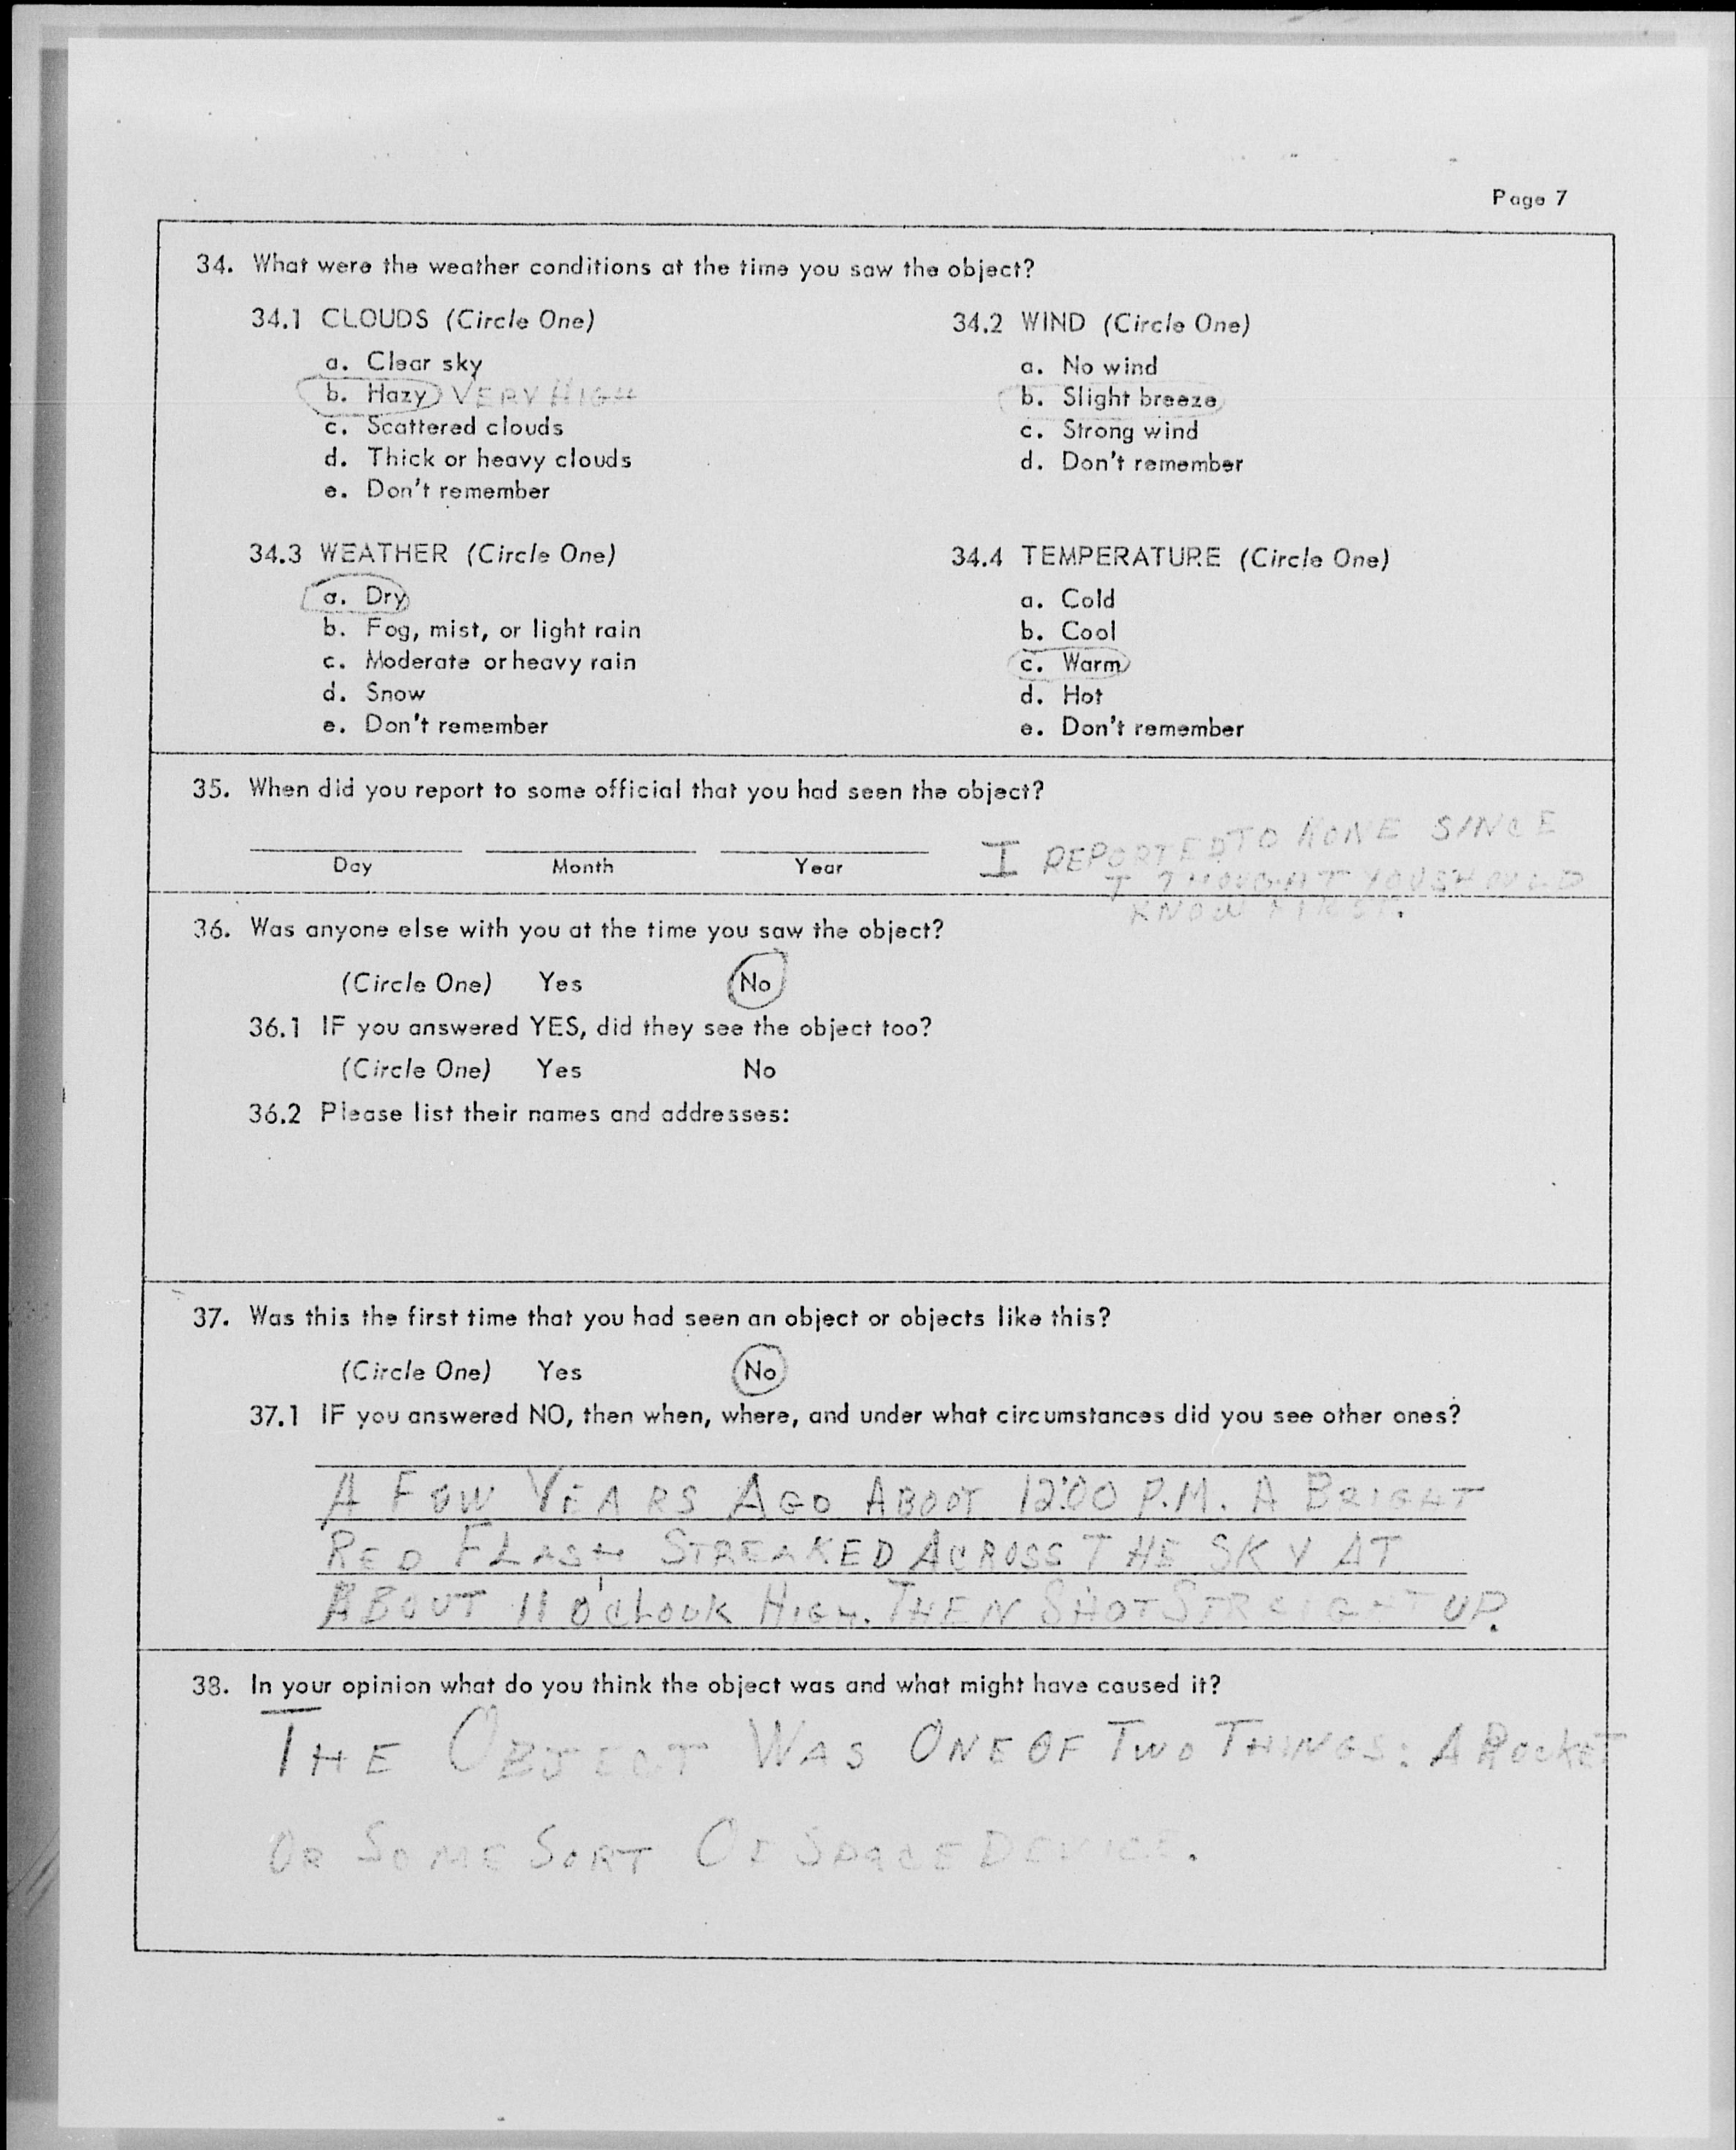 Page 7
34. What were the weather conditions at the time you saw the object?
34.1 CLOUDS (Circle One)
a. Clear sky
b. Hazy VERY HIGH
c. Scattered clouds
d. Thick or heavy clouds
e. Don't remember
34.2 WIND (Circle One)
a. No wind
b. Slight breeze
c. Strong wind
d. Don't remember
34.3 WEATHER (Circle One)
a. Dry
b. Fog, mist, or light rain
c. Moderate or heavy rain
d. Snow
e. Don't remember
34.4 TEMPERATURE (Circle One)
a. Cold
b. Cool
c. Warm
d. Hot
e. Don't remember
35. When did you report to some official that you had seen the object?
Day Month Year
I REPORTED TO NONE SINCE
I THOUGHT YOU SHOULD
KNOW FIRST.
36. Was anyone else with you at the time you saw the object?
(Circle One) Yes No
36.1 IF you answered YES, did they see the object too?
(Circle One) Yes No
36.2 Please list their names and addresses:
37. Was this the first time that you had seen an object or objects like this?
(Circle One) Yes No
37.1 IF you answered NO, then when, where, and under what circumstances did you see other ones?
A FEW YEARS AGO ABOUT 12:00 P.M. A BRIGHT
RED FLASH STREAKED ACROSS THE SKY AT
ABOUT 11 O'CLOOK HIGH. THEN SHOT STRAIGHT UP.
38. In your opinion what do you think the object was and what might have caused it?
THE OBJECT WAS ONE OF TWO THINGS: A ROCKET
OR SOME SORT OF SPACE DEVICE.